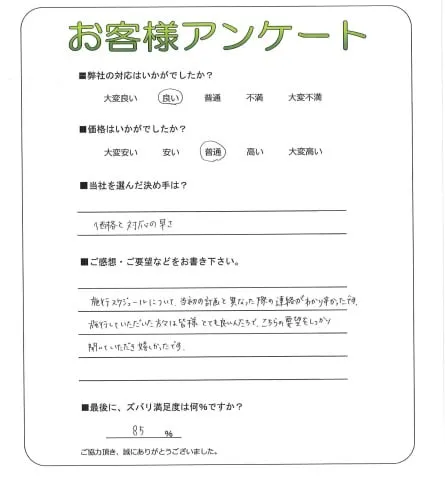 お客様アンケート
■弊社の対応はいかがでしたか?
大変良い 良い 普通 不満 大変不満
■価格はいかがでしたか?
大変安い 安い 普通 高い 大変高い
■当社を選んだ決め手は?
価格と対応の早さ
■ご感想・ご要望などをお書き下さい。
施行スケジュールについて、当初の計画と異なった際の連絡がわかり辛かったです。
施行していただいた方々は皆様とても良い人たちで、こちらの要望をしっかり
聞いていただき嬉しかったです。
■最後に、ズバリ満足度は何%ですか?
85 %
ご協力頂き、誠にありがとうございました。